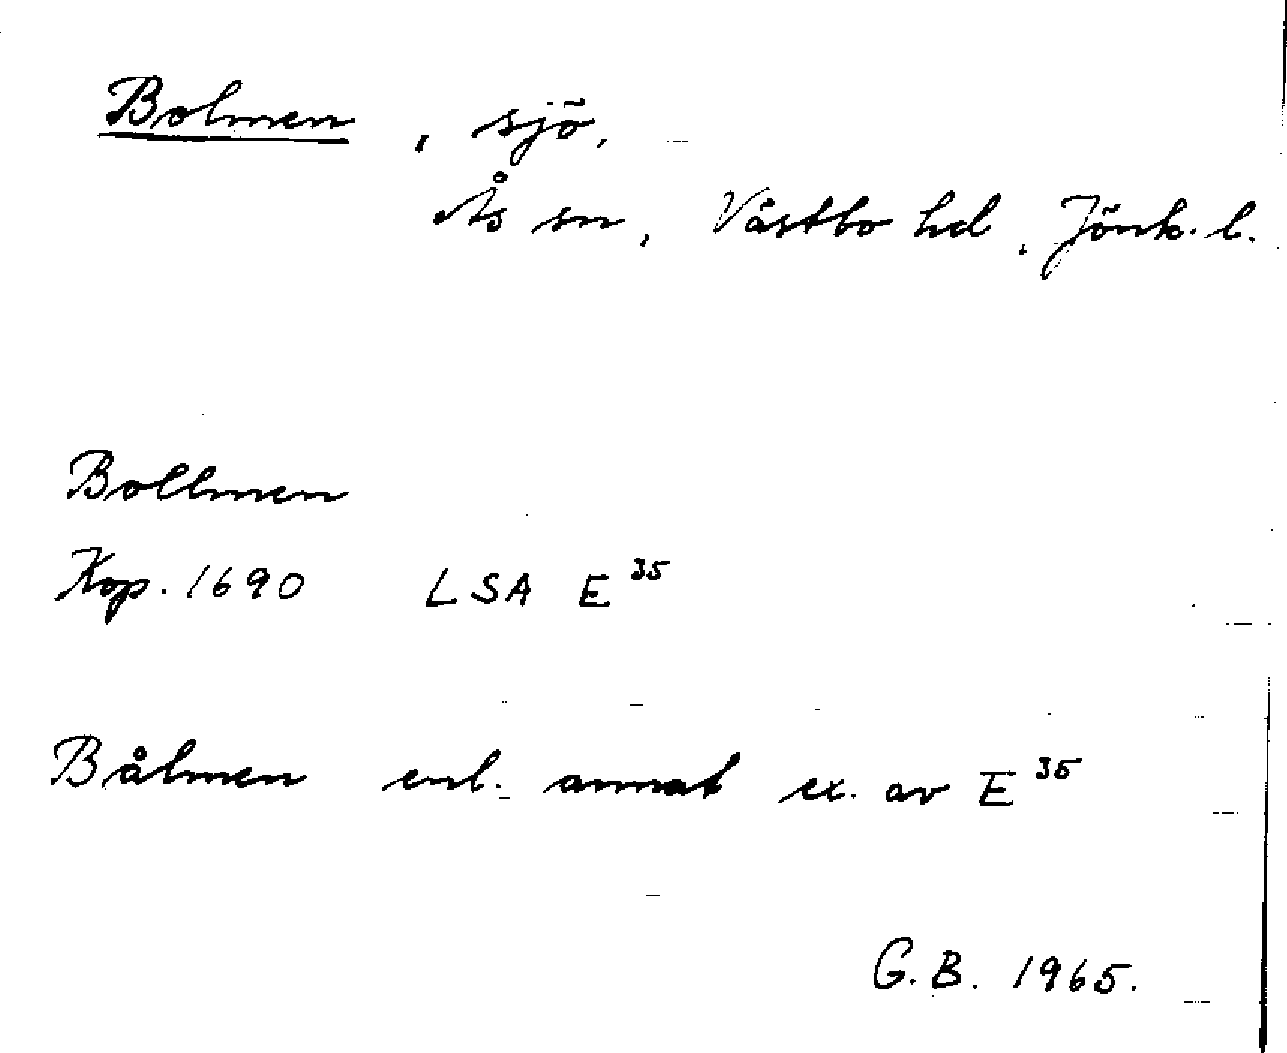 Bolmen, sjö,
Ås sn, Västbo hd, Jönk. l.
Bollmen
Kop. 1690 LSA E 35
Bålmen enl. annat ex. av E 35
G.B. 1965.